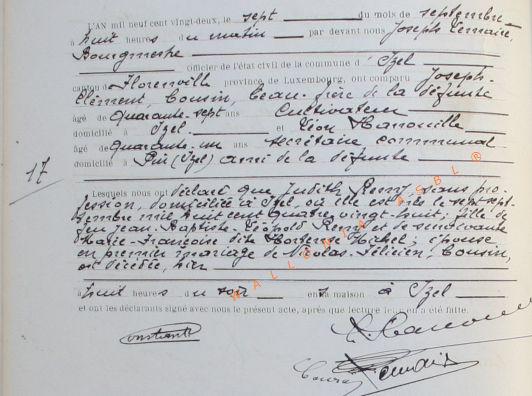 L'AN mil neuf cent vingt-deux, le sept du mois de septembre
à huit heures du matin par devant nous Joseph Lemaire,
Bourgmestre
officier de l'état civil de la commune d'Izel
canton de Florenville province de Luxembourg, ont comparu Joseph-
Clément, Cousin, beau-frère de la défunte
âgé de quarante-sept ans Cultivateur
domicilié à Izel et Léon Hanouille
âgé de quarante-un ans secrétaire communal
domicilié à Pin (Izel) ami de la défunte
17
Lesquels nous ont déclaré que Judith Remy, sans pro-
fession, domiciliée à Izel, où elle est née le sept sept-
tembre mil huit cent quatre vingt-huit; fille de
feu Jean-Baptiste-Léopold Remy et de survivante
Marie-Françoise dite Hortense Michel; épouse
en premier mariage de Nicolas-Félicien, Cousin,
est décédée, hier
à huit heures du soir en sa maison à Izel
et ont les déclarants signé avec nous le présent acte, après que lecture leur en a été faite.
WALLONIA ASBL ®